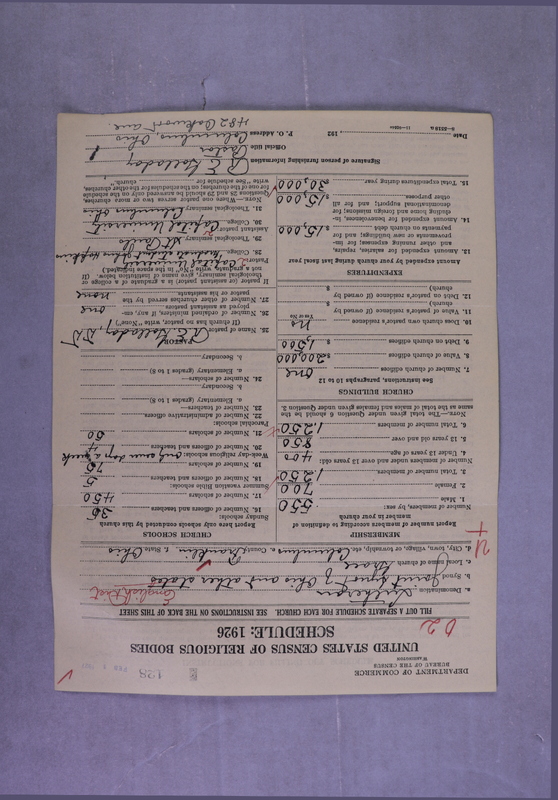 DEPARTMENT OF COMMERCE
BUREAU OF THE CENSUS
WASHINGTON
128
UNITED STATES CENSUS OF RELIGIOUS BODIES
SCHEDULE: 1926
FILL OUT A SEPARATE SCHEDULE FOR EACH CHURCH. SEE INSTRUCTIONS ON THE BACK OF THIS SHEET
a. Denomination Lutheran English Dist
b. Synod Joint Synod of Ohio and other states
c. Local name of church Grace
d. City, town, village, or township, etc. Columbus e. County Franklin f. State Ohio
MEMBERSHIP
Report number of members according to definition of
member in your church
Number of members, by sex:
1. Male 550
2. Female 700
3. Total number of members 1,250
Number of members under and over 13 years old:
4. Under 13 years of age 400
5. 13 years old and over 850
6. Total number of members 1,250
NOTE.—The total given under Question 6 should be the
same as the total of males and females given under Question 3.
CHURCH BUILDINGS
See instructions, paragraphs 10 to 12
7. Number of church edifices one
8. Value of church edifices $ 200,000
9. Debt on church edifices $ 1,500
10. Does church own pastor's residence no
Yes or No
11. Value of pastor's residence (if owned by
church) $
12. Debt on pastor's residence (if owned by
church) $
EXPENDITURES
Amount expended by your church during last fiscal year
13. Amount expended for salaries, repairs,
and other running expenses; for im-
provements or new buildings; and for
payments on church debt $ 15,000
14. Amount expended for benevolences, in-
cluding home and foreign missions; for
denominational support; and for all
other purposes $ 15,000
15. Total expenditures during year $ 30,000
CHURCH SCHOOLS
Report here only schools conducted by this church
Sunday schools:
16. Number of officers and teachers 36
17. Number of scholars 450
Summer vacation Bible schools:
18. Number of officers and teachers 5
19. Number of scholars 75
Week-day religious schools: only one day a week
20. Number of officers and teachers
21. Number of scholars 50
Parochial schools:
22. Number of administrative officers
23. Number of teachers—
a. Elementary (grades 1 to 8)
b. Secondary
24. Number of scholars—
a. Elementary (grades 1 to 8)
b. Secondary
PASTOR
25. Name of pastor
(If church has no pastor, write "None")
26. Number of ordained ministers, if any, em-
ployed as assistant pastors one
27. Number of other churches served by the
pastor or his assistants none
If pastor (or assistant pastor) is a graduate of a college or
theological seminary, give name of institution below. (If
not a graduate, write "No" in the space indicated.)
Pastor: Capital University
28. College
29. Theological seminary
Assistant pastor: Capital University
30. College
31. Theological seminary Columbus Ohio
NOTE.—Where one pastor serves two or more churches,
Questions 25 and 28 should be answered only on the schedule
for one of the churches; on the schedules for the other churches,
write "See schedule for church."
Signature of person furnishing information
Official title Pastor
P. O. Address Columbus, Ohio
482 Oakwood ave.
Date , 192